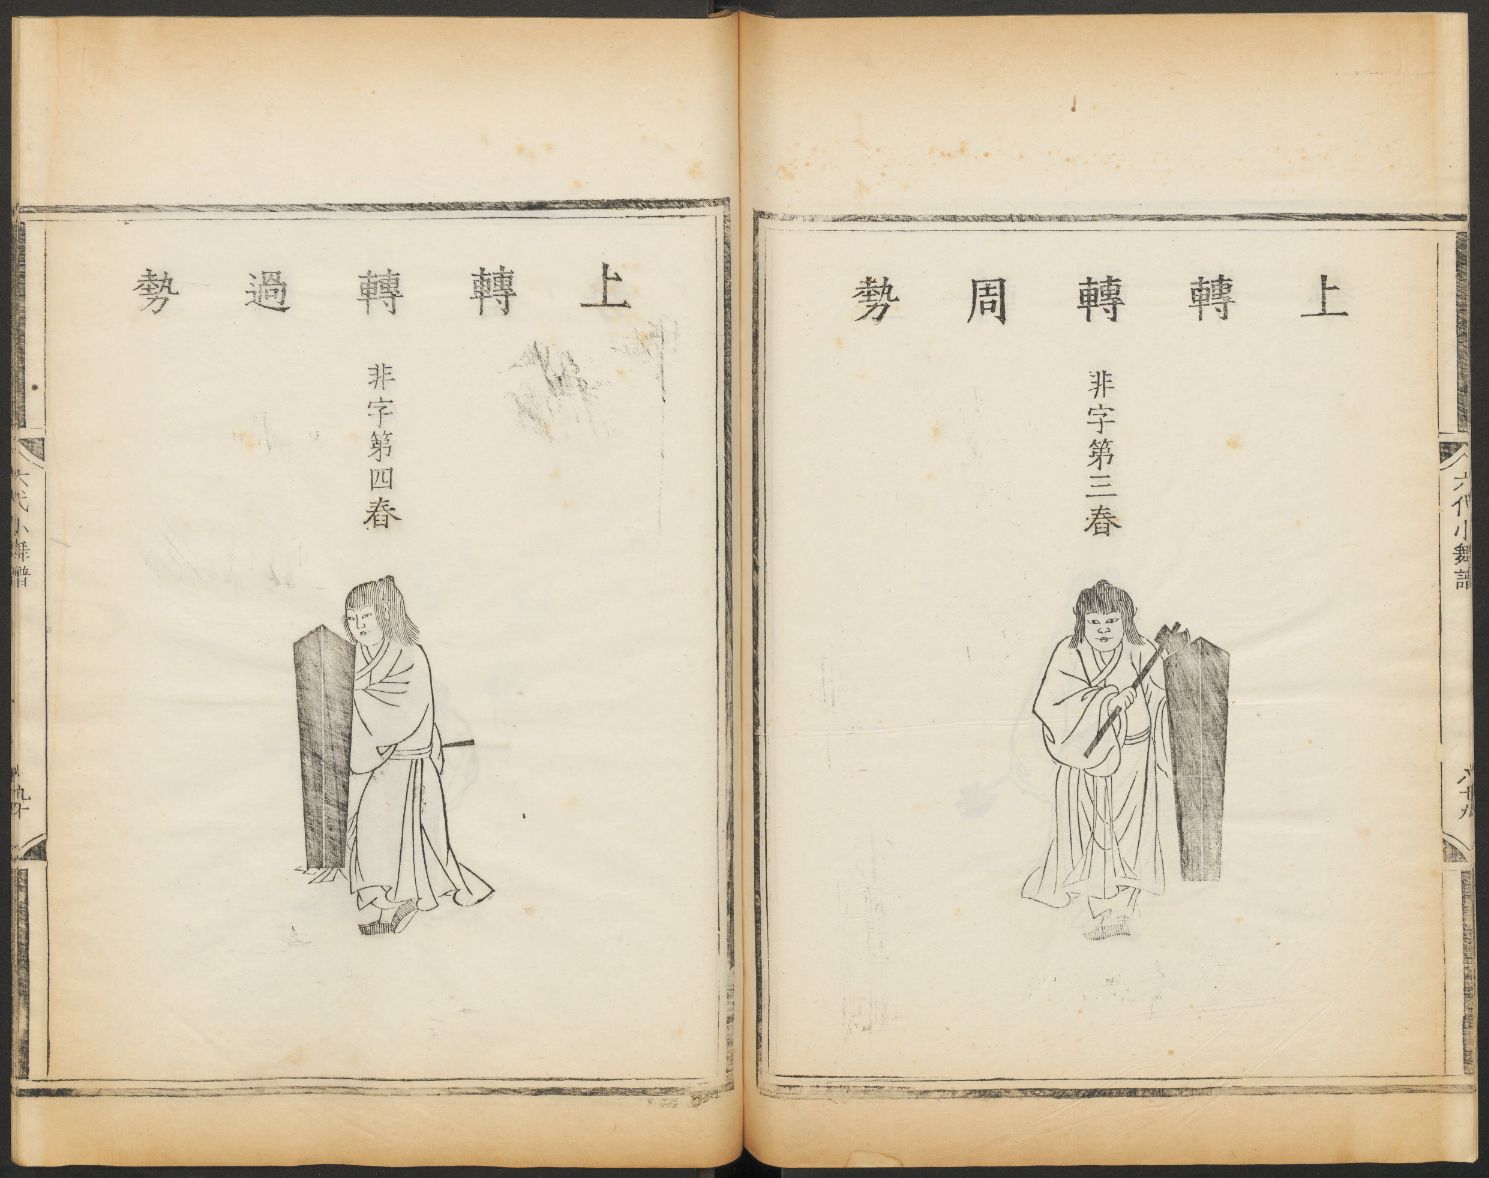 上轉轉周勢
非字第三舂
六代小舞譜
八十九
上轉轉過勢
非字第四舂
六代小舞譜
九十